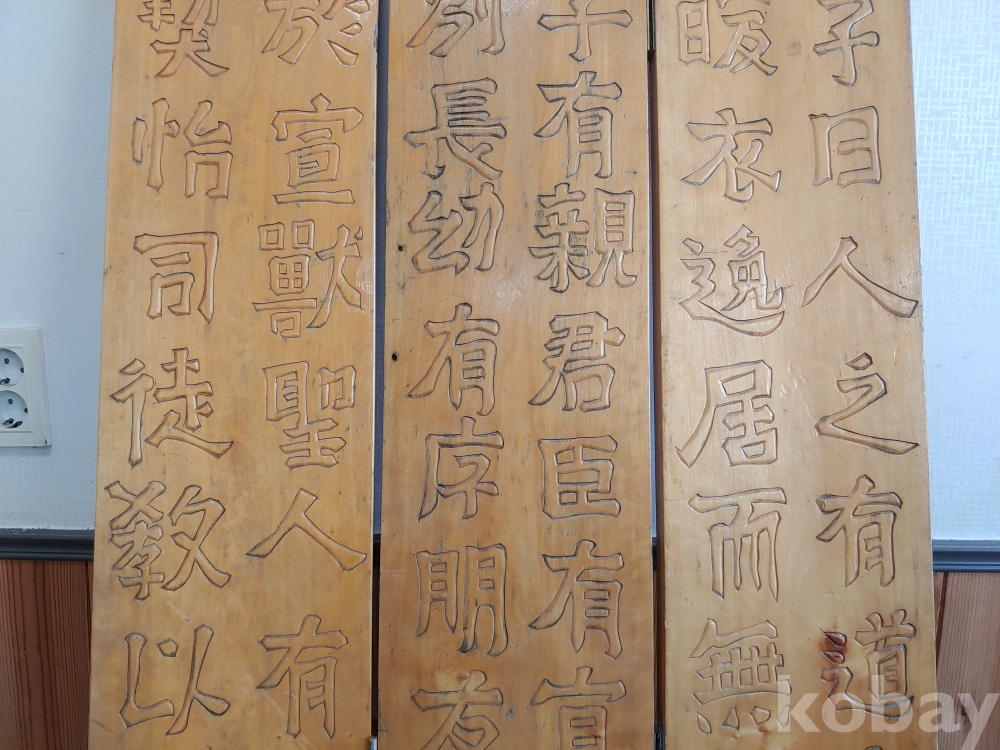 子曰人之有道
暖衣逸居而無
子有親君臣有
別長幼有序朋
於宣獸聖人有
怡司徒教以